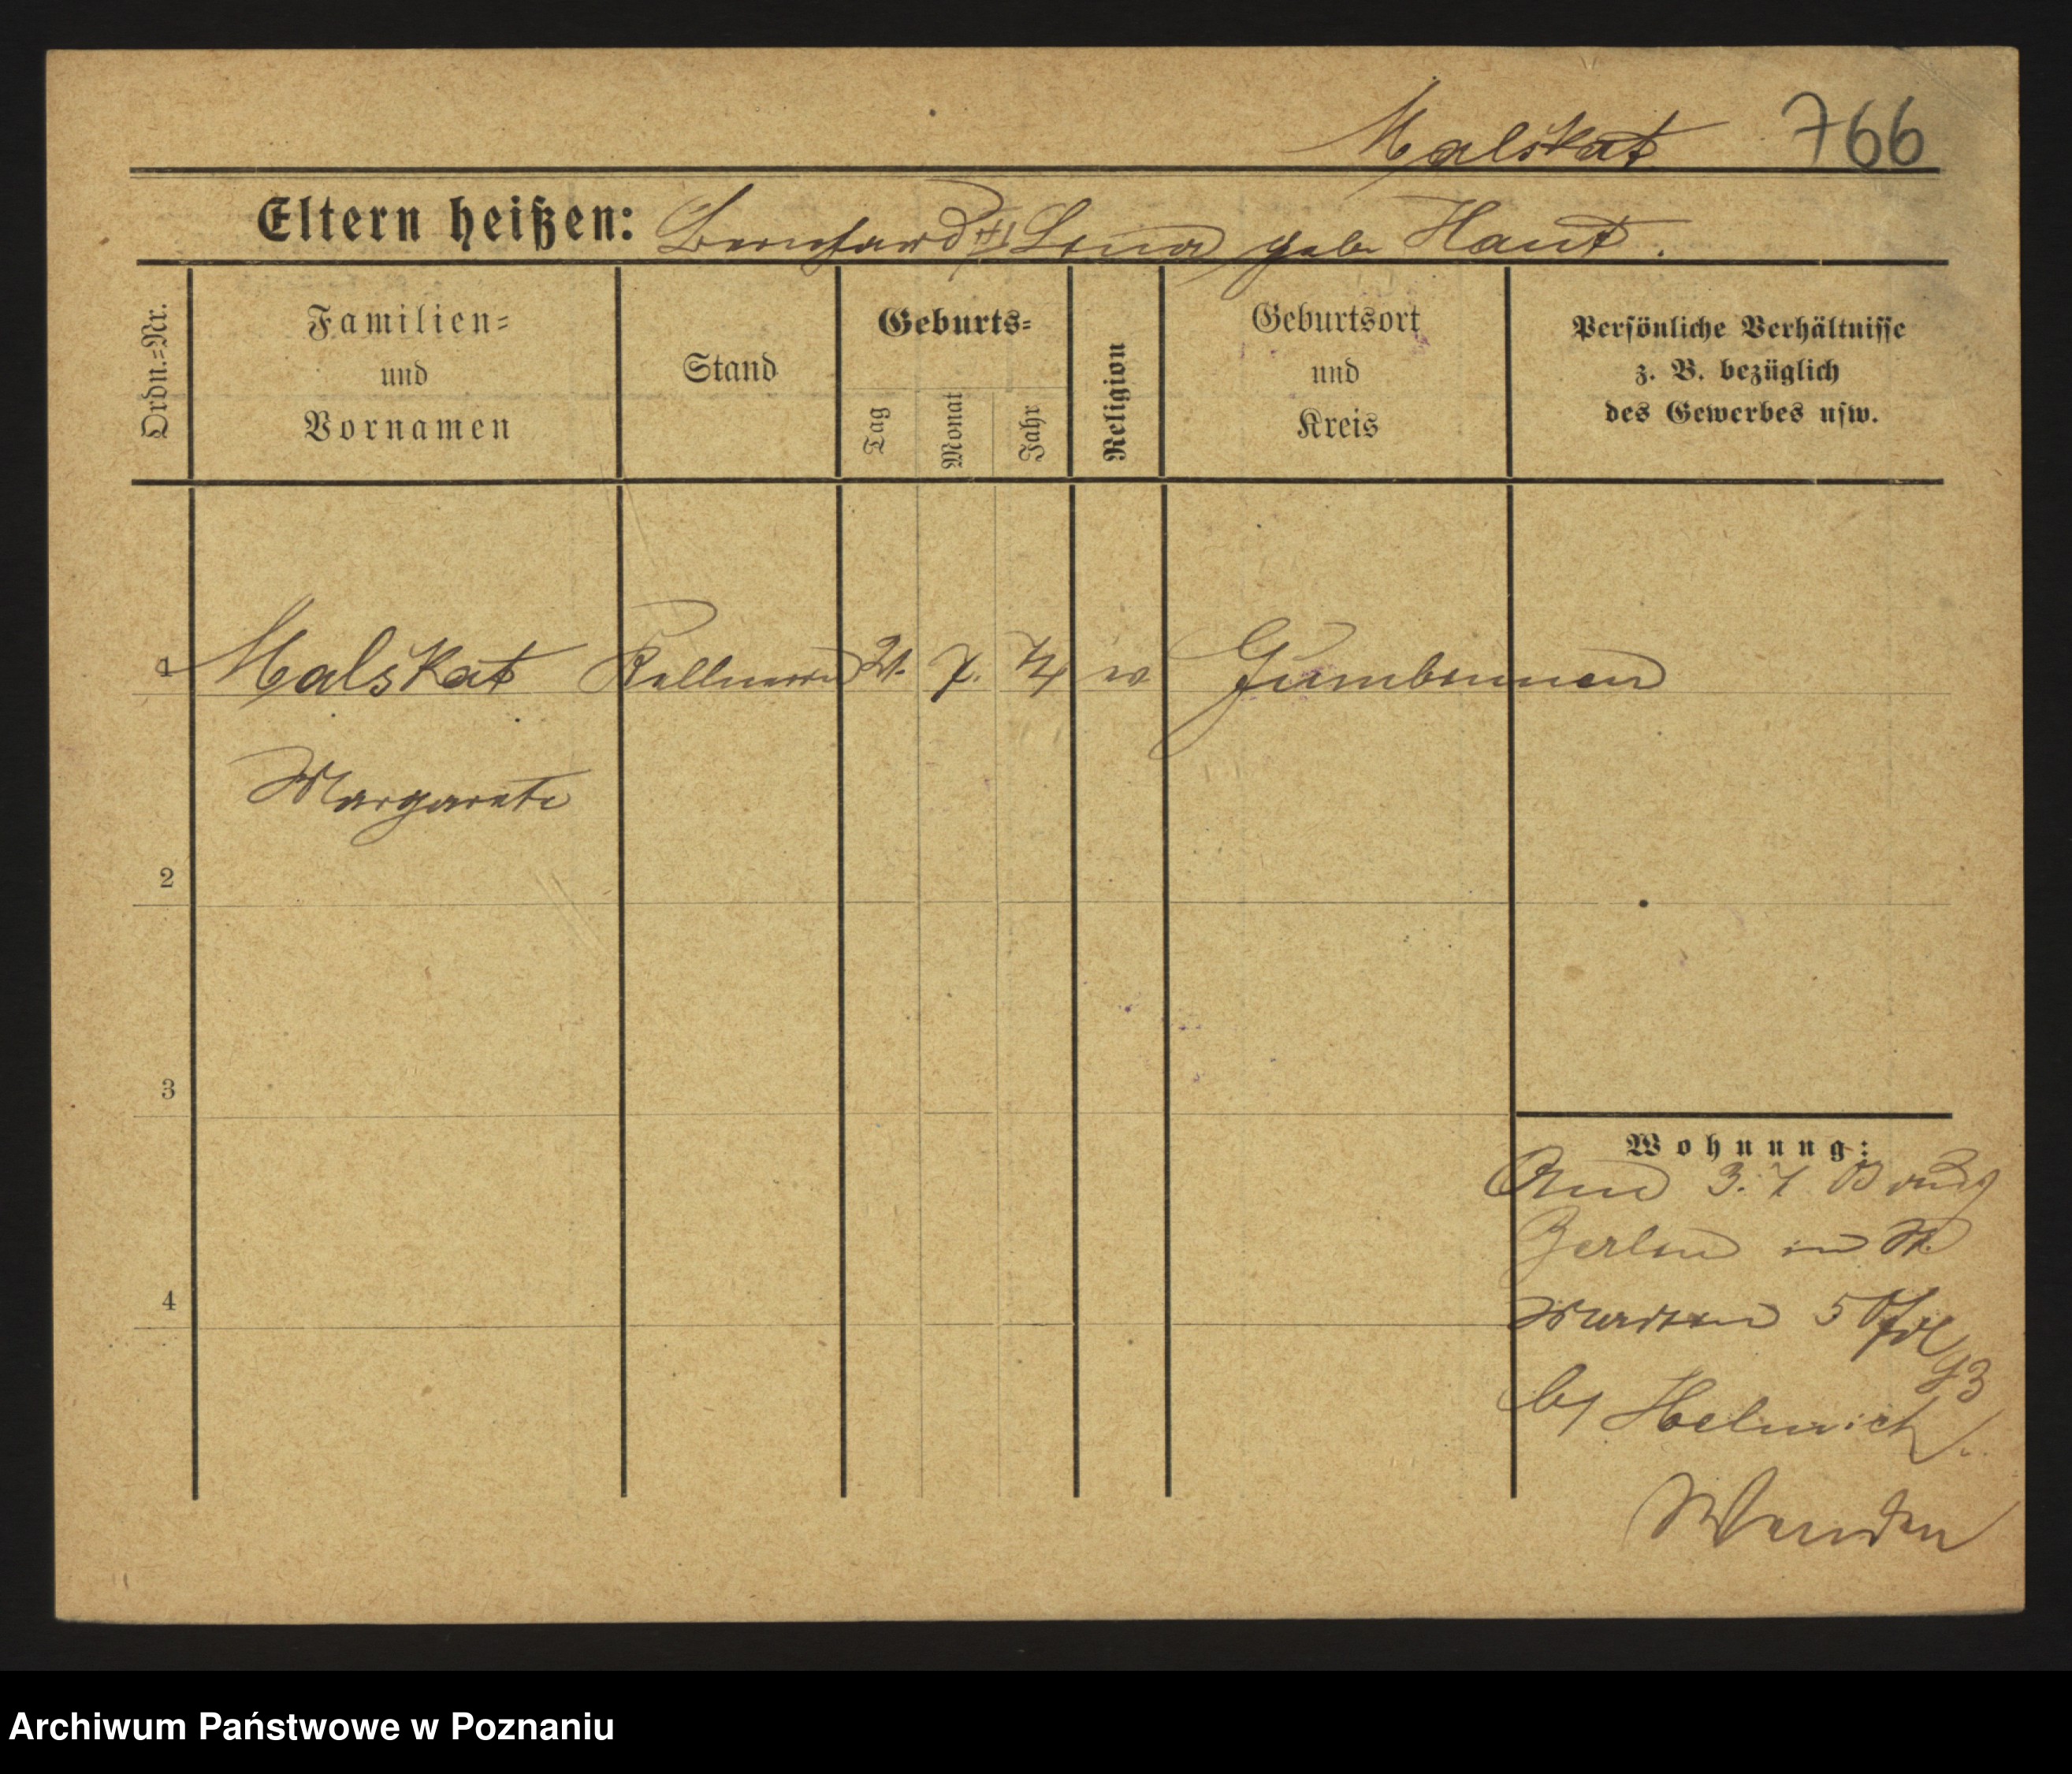 Malskat 766
Eltern heißen: Bernhard Lina geb. Haut.
Ordn.=Nr.
Familien=
und
Vornamen
Stand
Geburts=
Tag
Monat
Jahr
Religion
Geburtsort
und
Kreis
Persönliche Verhältnisse
z. B. bezüglich
des Gewerbes usw.
1 Malskat 21. 7. 74 Gumbinnen
Margarete
2
3
4
Wohnung:
3. 7
Berlin in St.
5
93
b/
Wenden
Archiwum Państwowe w Poznaniu